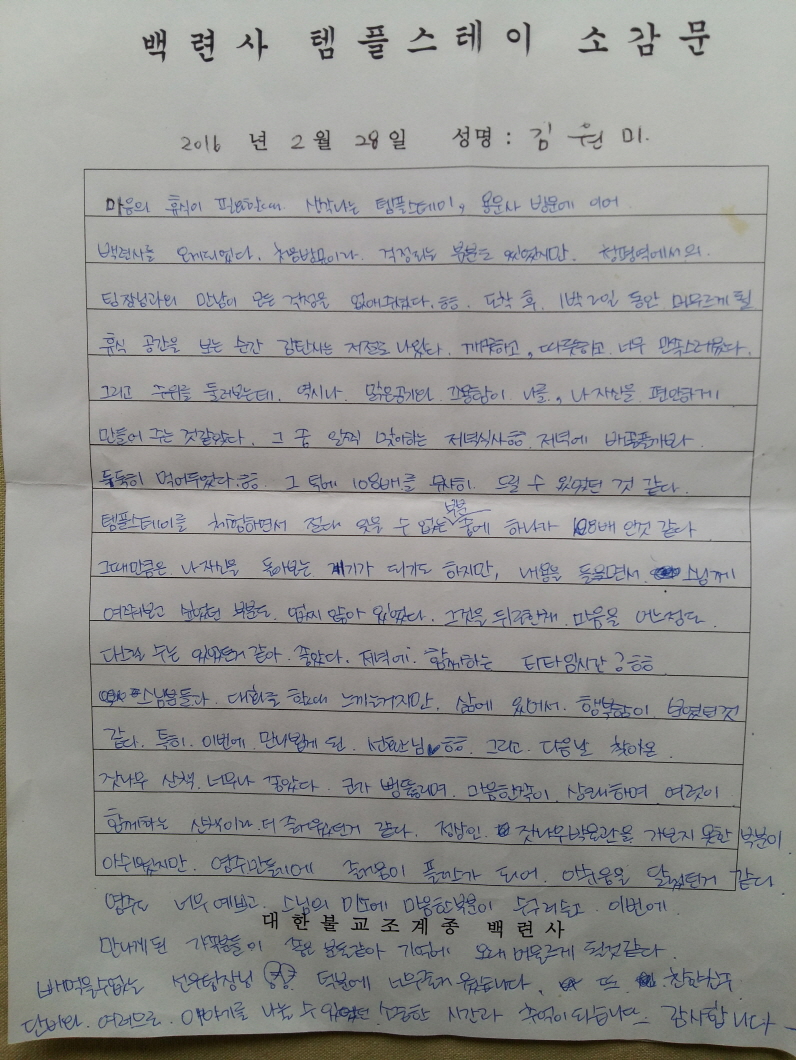 백련사 템플스테이 소감문
2016 년 2 월 28 일 성명 : 김 원 미.
마음의 휴식이 필요할때 생각나는 템플스테이, 용문사 방문에 이어
백련사를 오게되었다. 첫방문이라. 걱정되는 부분도 있었지만. 청평역에서의.
팀장님과의 만남이 모든 걱정을 없애주었다. ㅎㅎ. 도착 후, 1박2일 동안 머무르게 될
휴식 공간을 보는 순간 감탄사는 저절로 나왔다. 깨끗하고, 따뜻하고. 너무 만족스러웠다.
그리고 주위를 둘러보는데. 역시나. 맑은공기와 고요함이 나를, 나 자신을 편안하게
만들어 주는 것같았다. 그 중 일찍 맞이하는 저녁식사ㅎㅎ 저녁에 배고플까봐
든든히 먹어두었다.ㅎㅎ. 그 덕에 108배를 무사히 드릴 수 있었던 것 같다.
템플스테이를 체험하면서 절대 잊을 수 없는 부분 중에 하나가 108배 인것 같다
그때만큼은 나 자신을 돌아보는 계기가 되기도 하지만, 내용을 들으면서. 스님께
여쭤보고 싶었던 부분도. 없지 않아 있었다. 그것을 뒤로한채. 마음을 어느정도.
다스릴 수는 있었던거 같아. 좋았다. 저녁에. 함께하는 티타임시간 ㅎㅎ
스님분들과. 대화를 할때 느끼는거지만. 삶에 있어서. 행복함이 보였던것
같다. 특히. 이번에 만나뵙게 된. 선원스님 ㅎㅎ. 그리고. 다음날 찾아온
잣나무 산책. 너무나 좋았다. 코가 뻥뚫리며. 마음한쪽이 상쾌하며 여럿이
함께하는 산책이라 더 즐거웠던거 같다. 점심. 잣나무박물관을 가보지 못한 부분이
아쉬웠지만. 염주만들기에 즐거움이 플러스가 되어. 아쉬움을 달랬던거 같다
염주도 너무 예쁘고. 스님의 미소에 마음한부분이 수그러들고. 이번에.
대한불교조계종 백련사
만나게된 가족분들이 좋은 분들같아 기억에 오래 머무르게 될것같다.
빼먹을수없는 선우팀장님 덕분에 너무즐거웠습니다. 또
여러모로. 이야기를 나눌 수 있었던 소중한 시간과 추억이 되습니다. 감사합니다